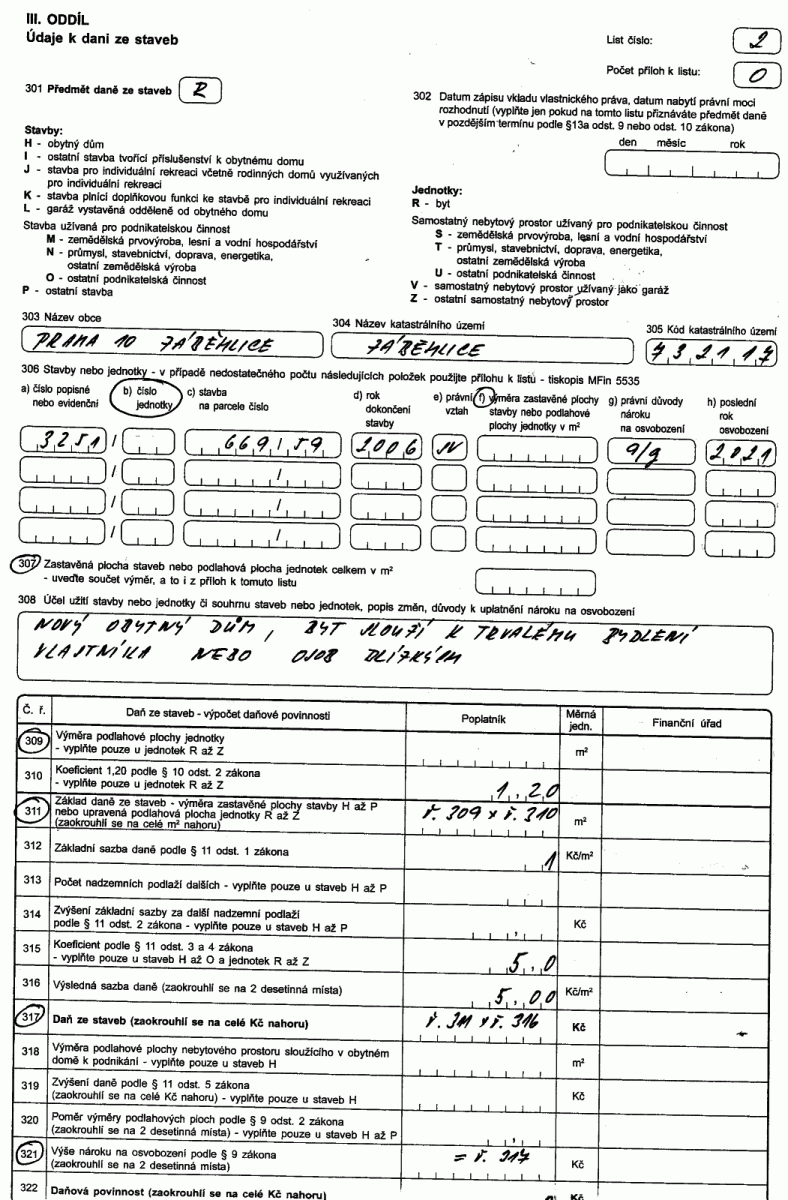 III. ODDÍL
Údaje k dani ze staveb
List číslo: 2
Počet příloh k listu: 0
301 Předmět daně ze staveb R
302 Datum zápisu vkladu vlastnického práva, datum nabytí právní moci
rozhodnutí (vyplňte jen pokud na tomto listu přiznáváte předmět daně
v pozdějším termínu podle §13a odst. 9 nebo odst. 10 zákona)
den měsíc rok
Stavby:
H - obytný dům
I - ostatní stavba tvořící příslušenství k obytnému domu
J - stavba pro individuální rekreaci včetně rodinných domů využívaných
pro individuální rekreaci
K - stavba plnící doplňkovou funkci ke stavbě pro individuální rekreaci
L - garáž vystavěná odděleně od obytného domu
Stavba užívaná pro podnikatelskou činnost
M - zemědělská prvovýroba, lesní a vodní hospodářství
N - průmysl, stavebnictví, doprava, energetika,
ostatní zemědělská výroba
O - ostatní podnikatelská činnost
P - ostatní stavba
Jednotky:
R - byt
Samostatný nebytový prostor užívaný pro podnikatelskou činnost
S - zemědělská prvovýroba, lesní a vodní hospodářství
T - průmysl, stavebnictví, doprava, energetika,
ostatní zemědělská výroba
U - ostatní podnikatelská činnost
V - samostatný nebytový prostor užívaný jako garáž
Z - ostatní samostatný nebytový prostor
303 Název obce
PRAHA 10 ZÁBĚHLICE
304 Název katastrálního území
ZÁBĚHLICE
305 Kód katastrálního území
732117
306 Stavby nebo jednotky - v případě nedostatečného počtu následujících položek použijte přílohu k listu - tiskopis MFin 5535
a) číslo popisné
nebo evidenční
b) číslo
jednotky
c) stavba
na parcele číslo
d) rok
dokončení
stavby
e) právní
vztah
f) výměra zastavěné plochy
stavby nebo podlahové
plochy jednotky v m²
g) právní důvody
nároku
na osvobození
h) poslední
rok
osvobození
3251 / 669/59 2006 SV 9/g 2021
/ /
/ /
/ /
307 Zastavěná plocha staveb nebo podlahová plocha jednotek celkem v m²
- uveďte součet výměr, a to i z příloh k tomuto listu
308 Účel užití stavby nebo jednotky či souhrnu staveb nebo jednotek, popis změn, důvody k uplatnění nároku na osvobození
NOVÝ OBYTNÝ DŮM, BYT SLOUŽÍ K TRVALÉMU BYDLENÍ
VLASTNÍKA NEBO OSOB BLÍZKÝCH
Č. ř. Daň ze staveb - výpočet daňové povinnosti Poplatník Měrná jedn. Finanční úřad
309 Výměra podlahové plochy jednotky
- vyplňte pouze u jednotek R až Z m²
310 Koeficient 1,20 podle § 10 odst. 2 zákona
- vyplňte pouze u jednotek R až Z 1,20
311 Základ daně ze staveb - výměra zastavěné plochy stavby H až P
nebo upravená podlahová plocha jednotky R až Z ř. 309 x ř. 310
(zaokrouhlí se na celé m² nahoru) m²
312 Základní sazba daně podle § 11 odst. 1 zákona 1 Kč/m²
313 Počet nadzemních podlaží dalších - vyplňte pouze u staveb H až P
314 Zvýšení základní sazby za další nadzemní podlaží
podle § 11 odst. 2 zákona - vyplňte pouze u staveb H až P , Kč
315 Koeficient podle § 11 odst. 3 a 4 zákona
- vyplňte pouze u staveb H až O a jednotek R až Z 5,0
316 Výsledná sazba daně (zaokrouhlí se na 2 desetinná místa) 5,00 Kč/m²
317 Daň ze staveb (zaokrouhlí se na celé Kč nahoru) ř. 311 x ř. 316 Kč
318 Výměra podlahové plochy nebytového prostoru sloužícího v obytném
domě k podnikání - vyplňte pouze u staveb H m²
319 Zvýšení daně podle § 11 odst. 5 zákona
(zaokrouhlí se na celé Kč nahoru) - vyplňte pouze u staveb H Kč
320 Poměr výměry podlahových ploch podle § 9 odst. 2 zákona
(zaokrouhlí se na 2 desetinná místa) - vyplňte pouze u staveb H až P ,
321 Výše nároku na osvobození podle § 9 zákona
(zaokrouhlí se na 2 desetinná místa) = ř. 317 Kč
322 Daňová povinnost (zaokrouhlí se na celé Kč nahoru) Kč